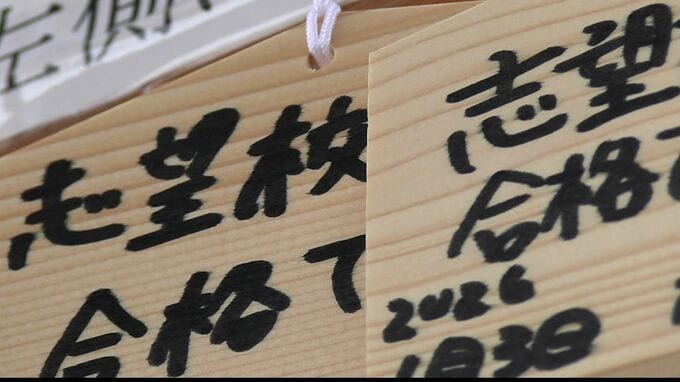 左側
志望校
合格で
志望
合格
2026
1月3日